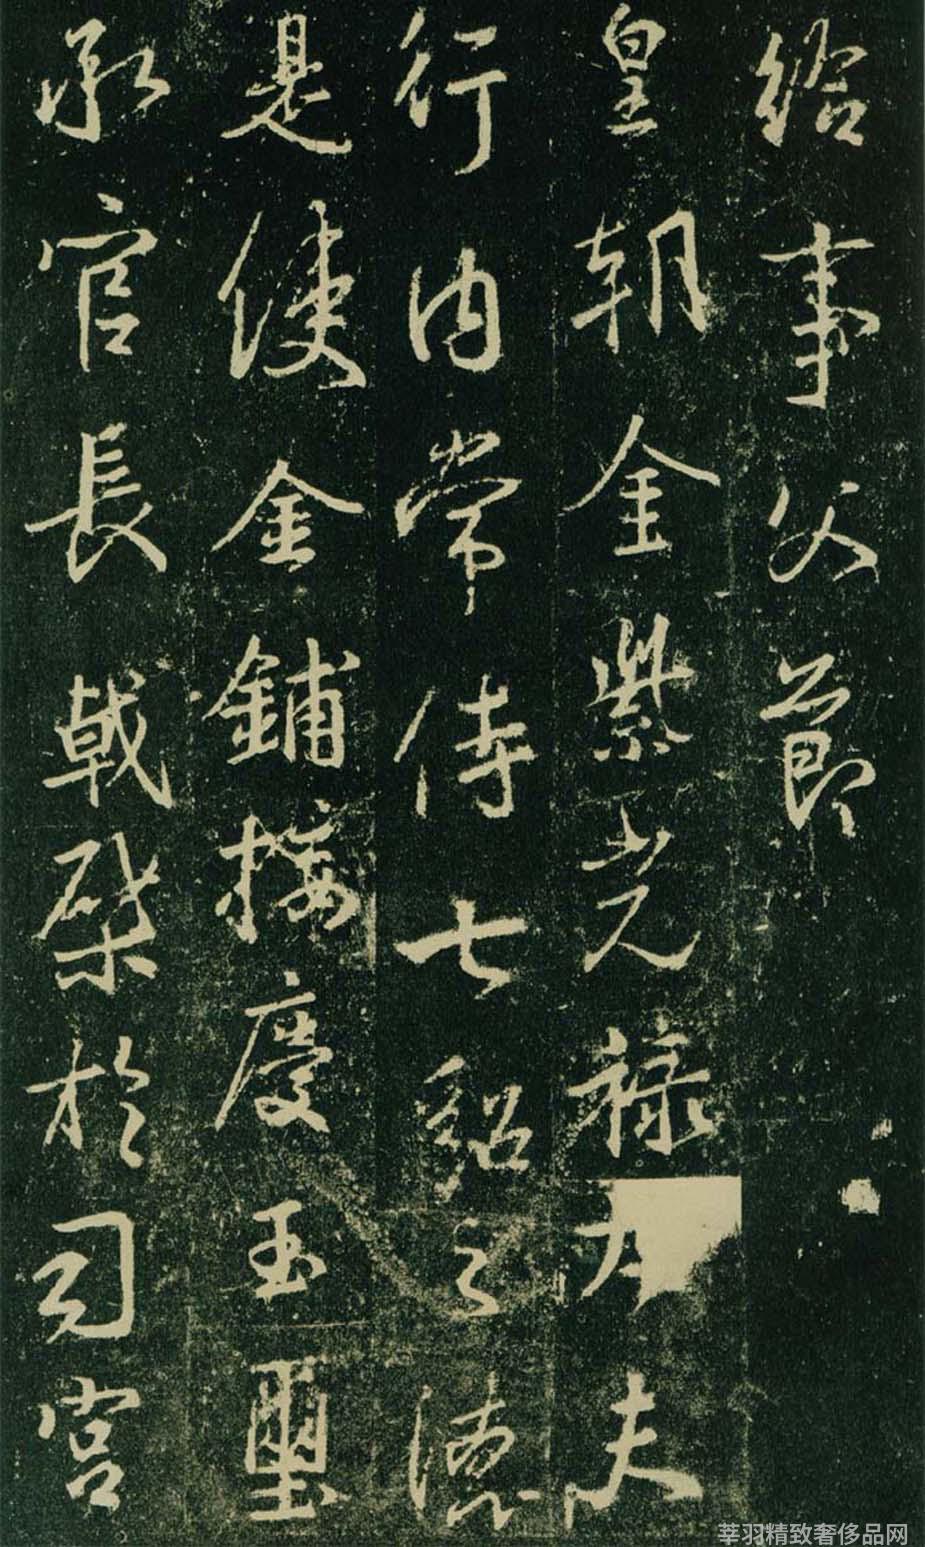 給事父節
皇朝金紫光祿大夫
行內常侍七貂之德
是使金鋪接慶玉璽
承官長戟棨於司宮
莘羽精致奢侈品网